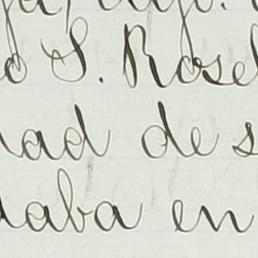 o S. Rosel
dad de s
taba en